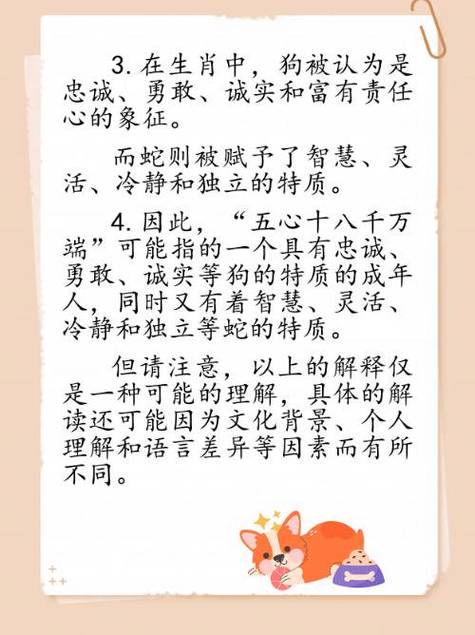 3. 在生肖中，狗被认为是
忠诚、勇敢、诚实和富有责任
心的象征。
而蛇则被赋予了智慧、灵
活、冷静和独立的特质。
4. 因此，“五心十八千万
端”可能指的一个具有忠诚、
勇敢、诚实等狗的特质的成年
人，同时又有着智慧、灵活、
冷静和独立等蛇的特质。
但请注意，以上的解释仅
是一种可能的理解，具体的解
读还可能因为文化背景、个人
理解和语言差异等因素而有所
不同。